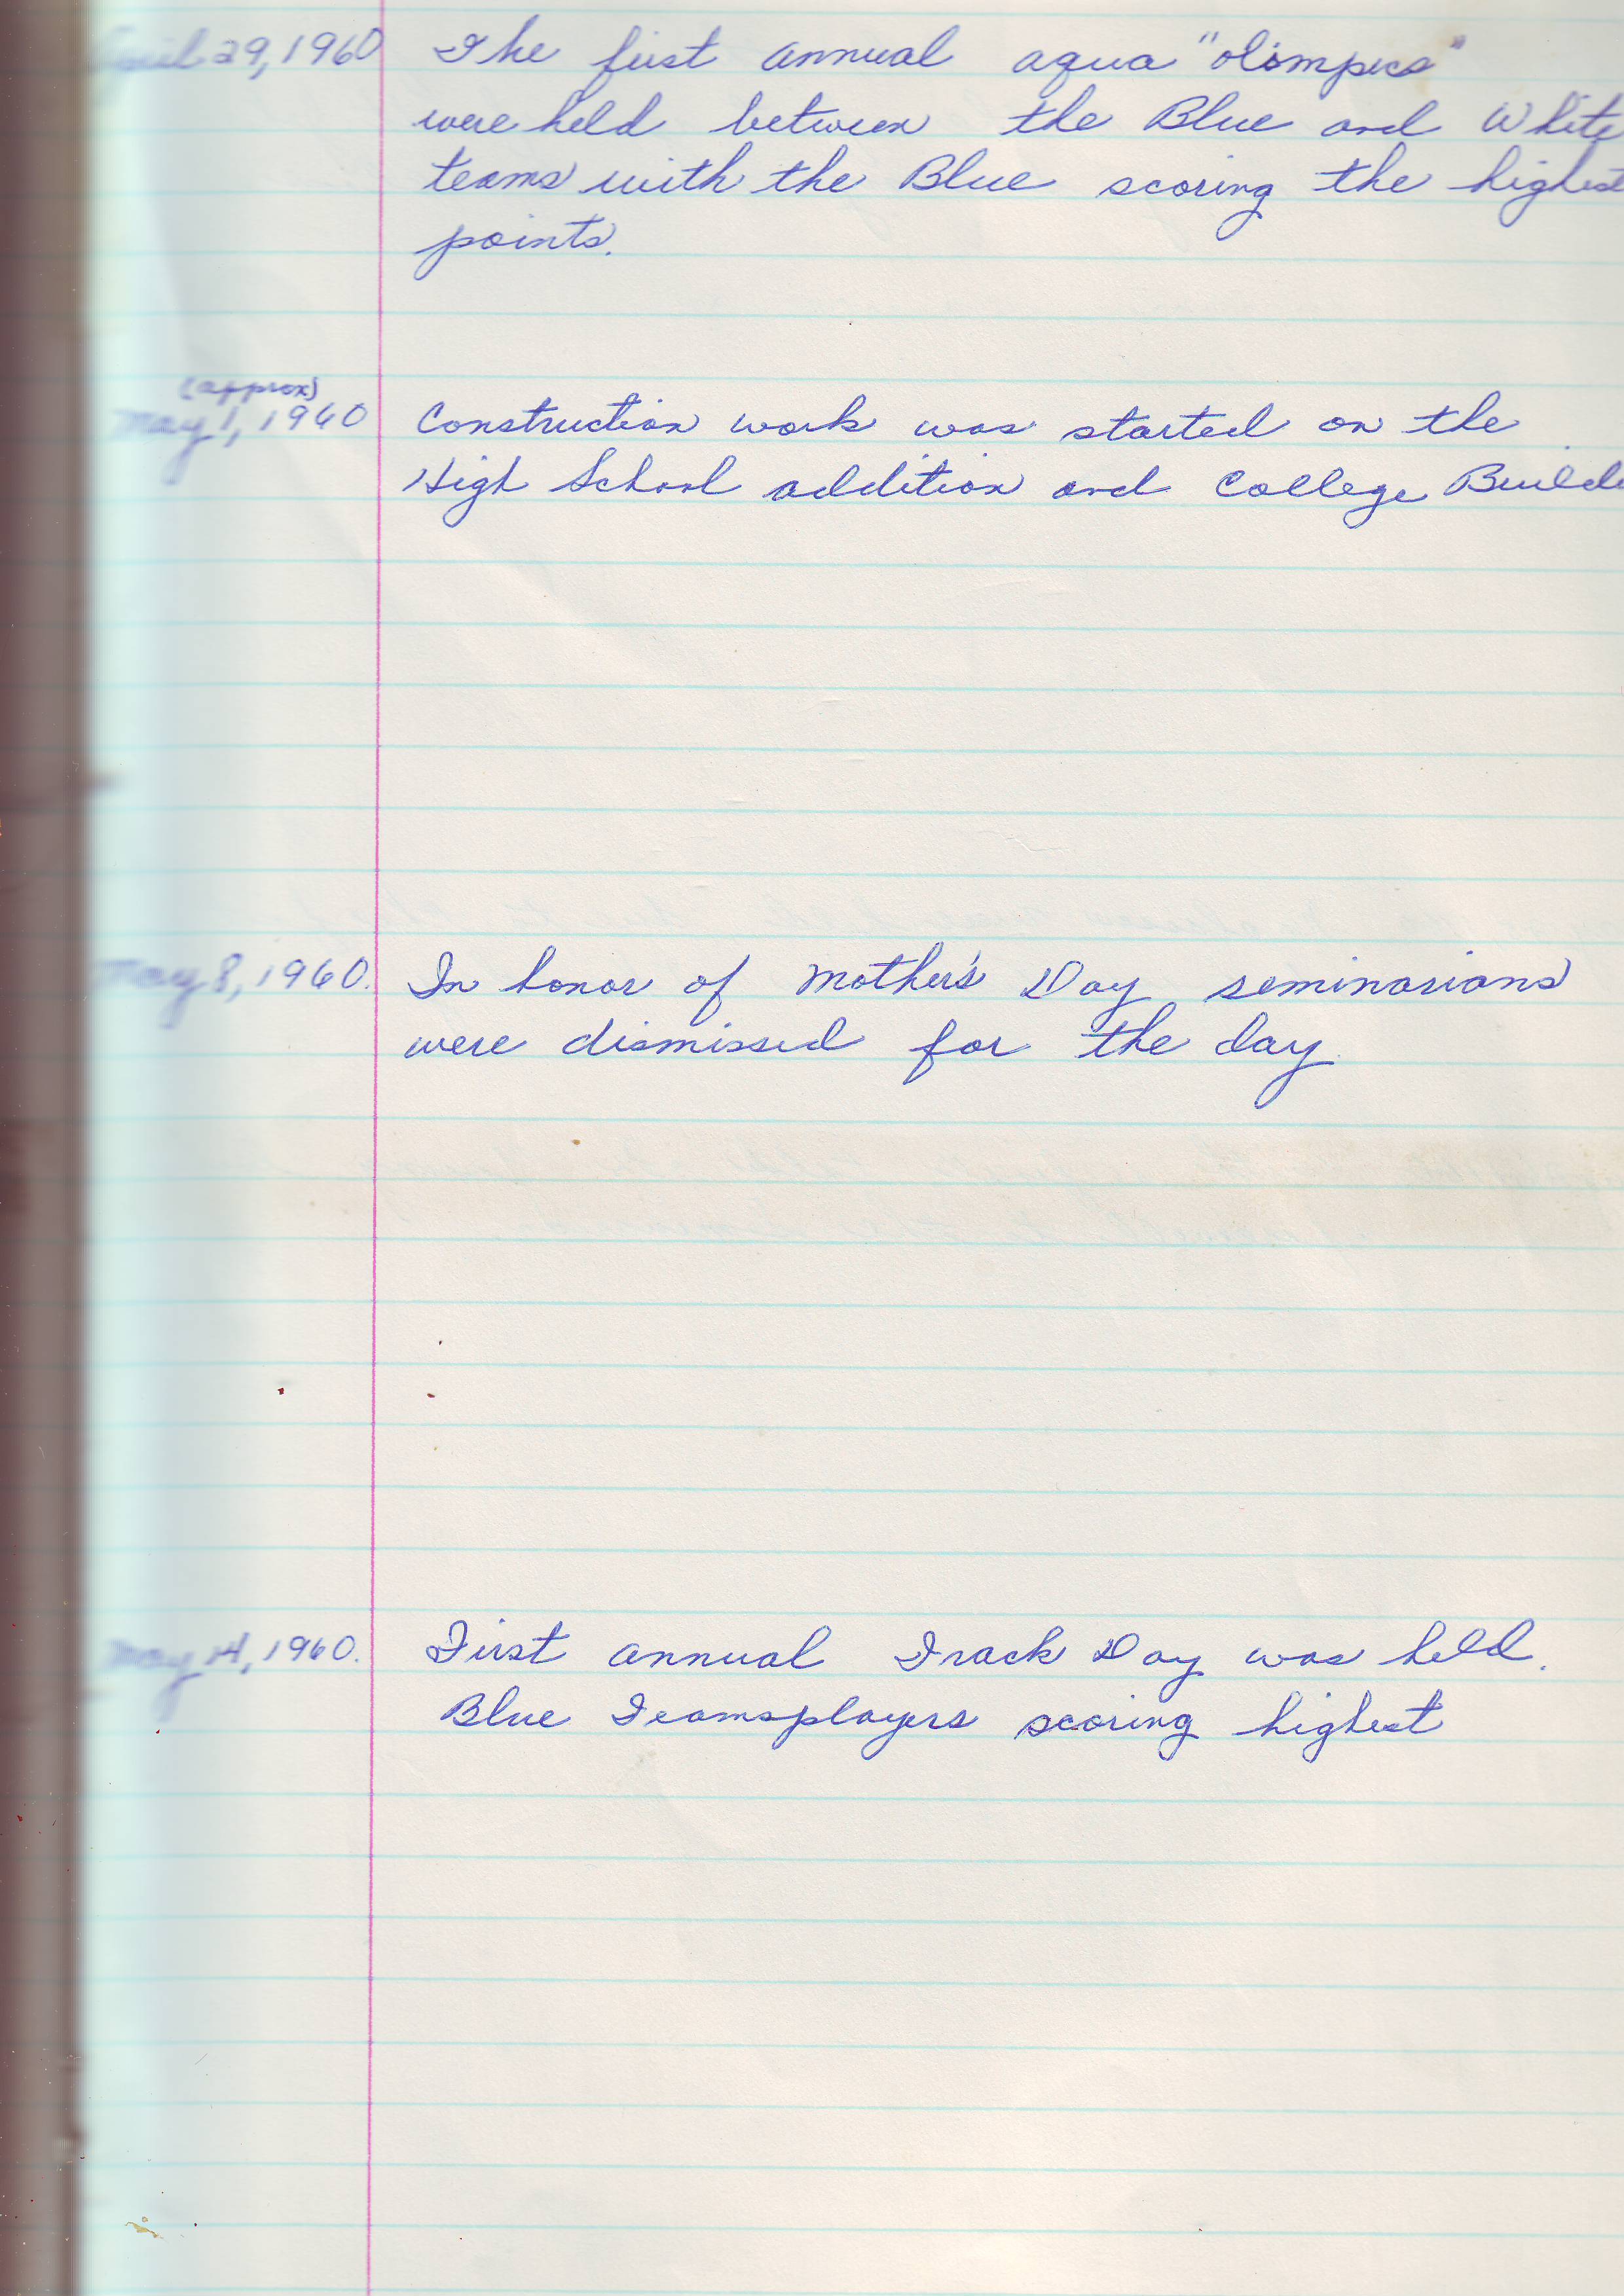 April 29, 1960 The first annual aqua "olimpics"
were held between the Blue and White
teams with the Blue scoring the highest
points.
(approx)
May 1, 1960 Construction work was started on the
High School addition and College Build
May 8, 1960. In honor of Mother's Day seminarians
were dismissed for the day
May 14, 1960. First annual Track Day was held.
Blue Teamsplayers scoring highest